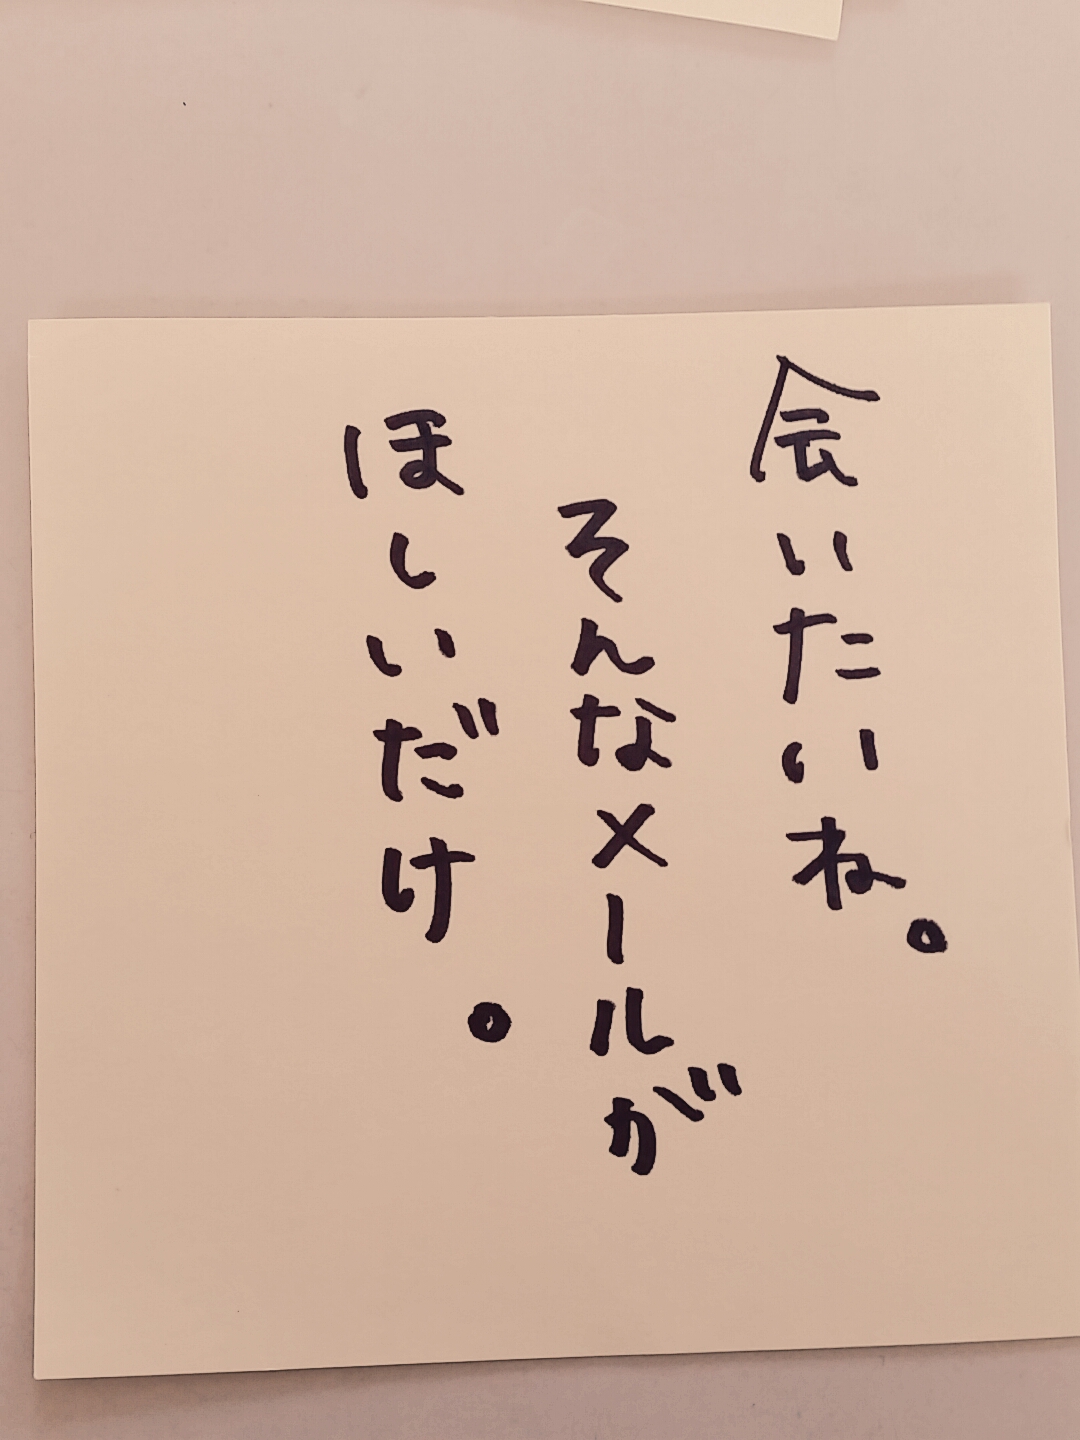 会いたいね。
そんなメールが
ほしいだけ。